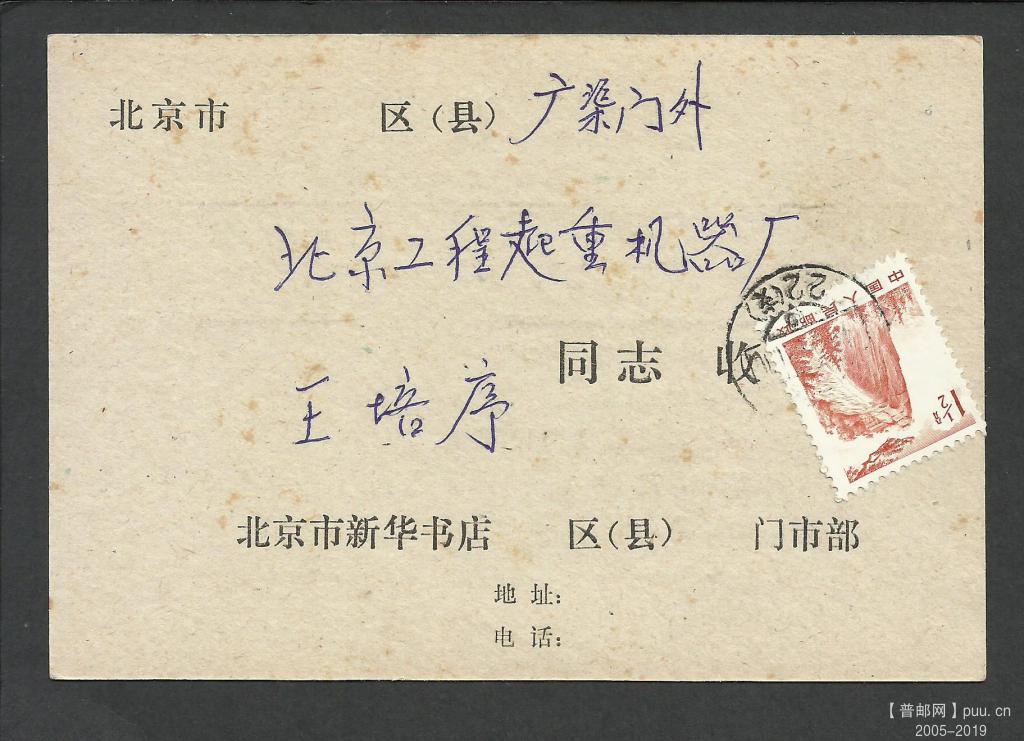 北京市 区(县) 广渠门外
北京工程起重机器厂
同志 收
王培序
北京市新华书店 区(县) 门市部
地 址:
电 话:
中国人民邮政
1 1/2分
22(支)
【普邮网】puu.cn
2005-2019